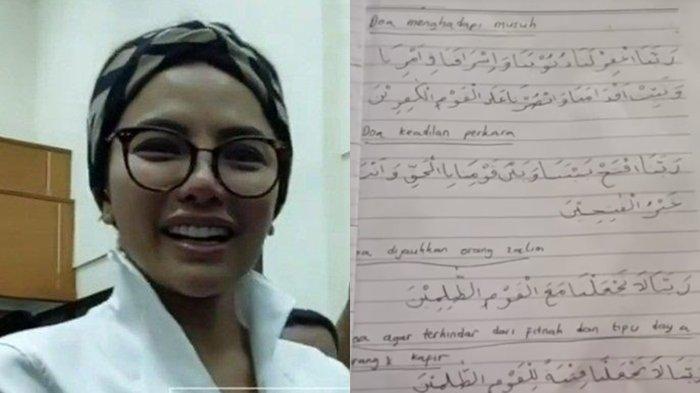 Doa menghadapi musuh
رَبَّنَا اغْفِرْ لَنَا ذُنُوْبَنَا وَاِسْرَافَنَا فِيْ اَمْرِنَا
وَثَبِّتْ اَقْدَامَنَا وَانْصُرْنَا عَلَى الْقَوْمِ الْكٰفِرِيْنَ
Doa keadilan perkara
رَبَّنَا افْتَحْ بَيْنَنَا وَبَيْنَ قَوْمِنَا بِالْحَقِّ وَاَنْتَ
خَيْرُ الْفٰتِحِيْنَ
dijauhkan orang zalim
رَبَّنَا لَا تَجْعَلْنَا مَعَ الْقَوْمِ الظّٰلِمِيْنَ
agar terhindar dari fitnah dan tipu daya
kafir
رَبَّنَا لَا تَجْعَلْنَا فِتْنَةً لِّلْقَوْمِ الظّٰلِمِيْنَ